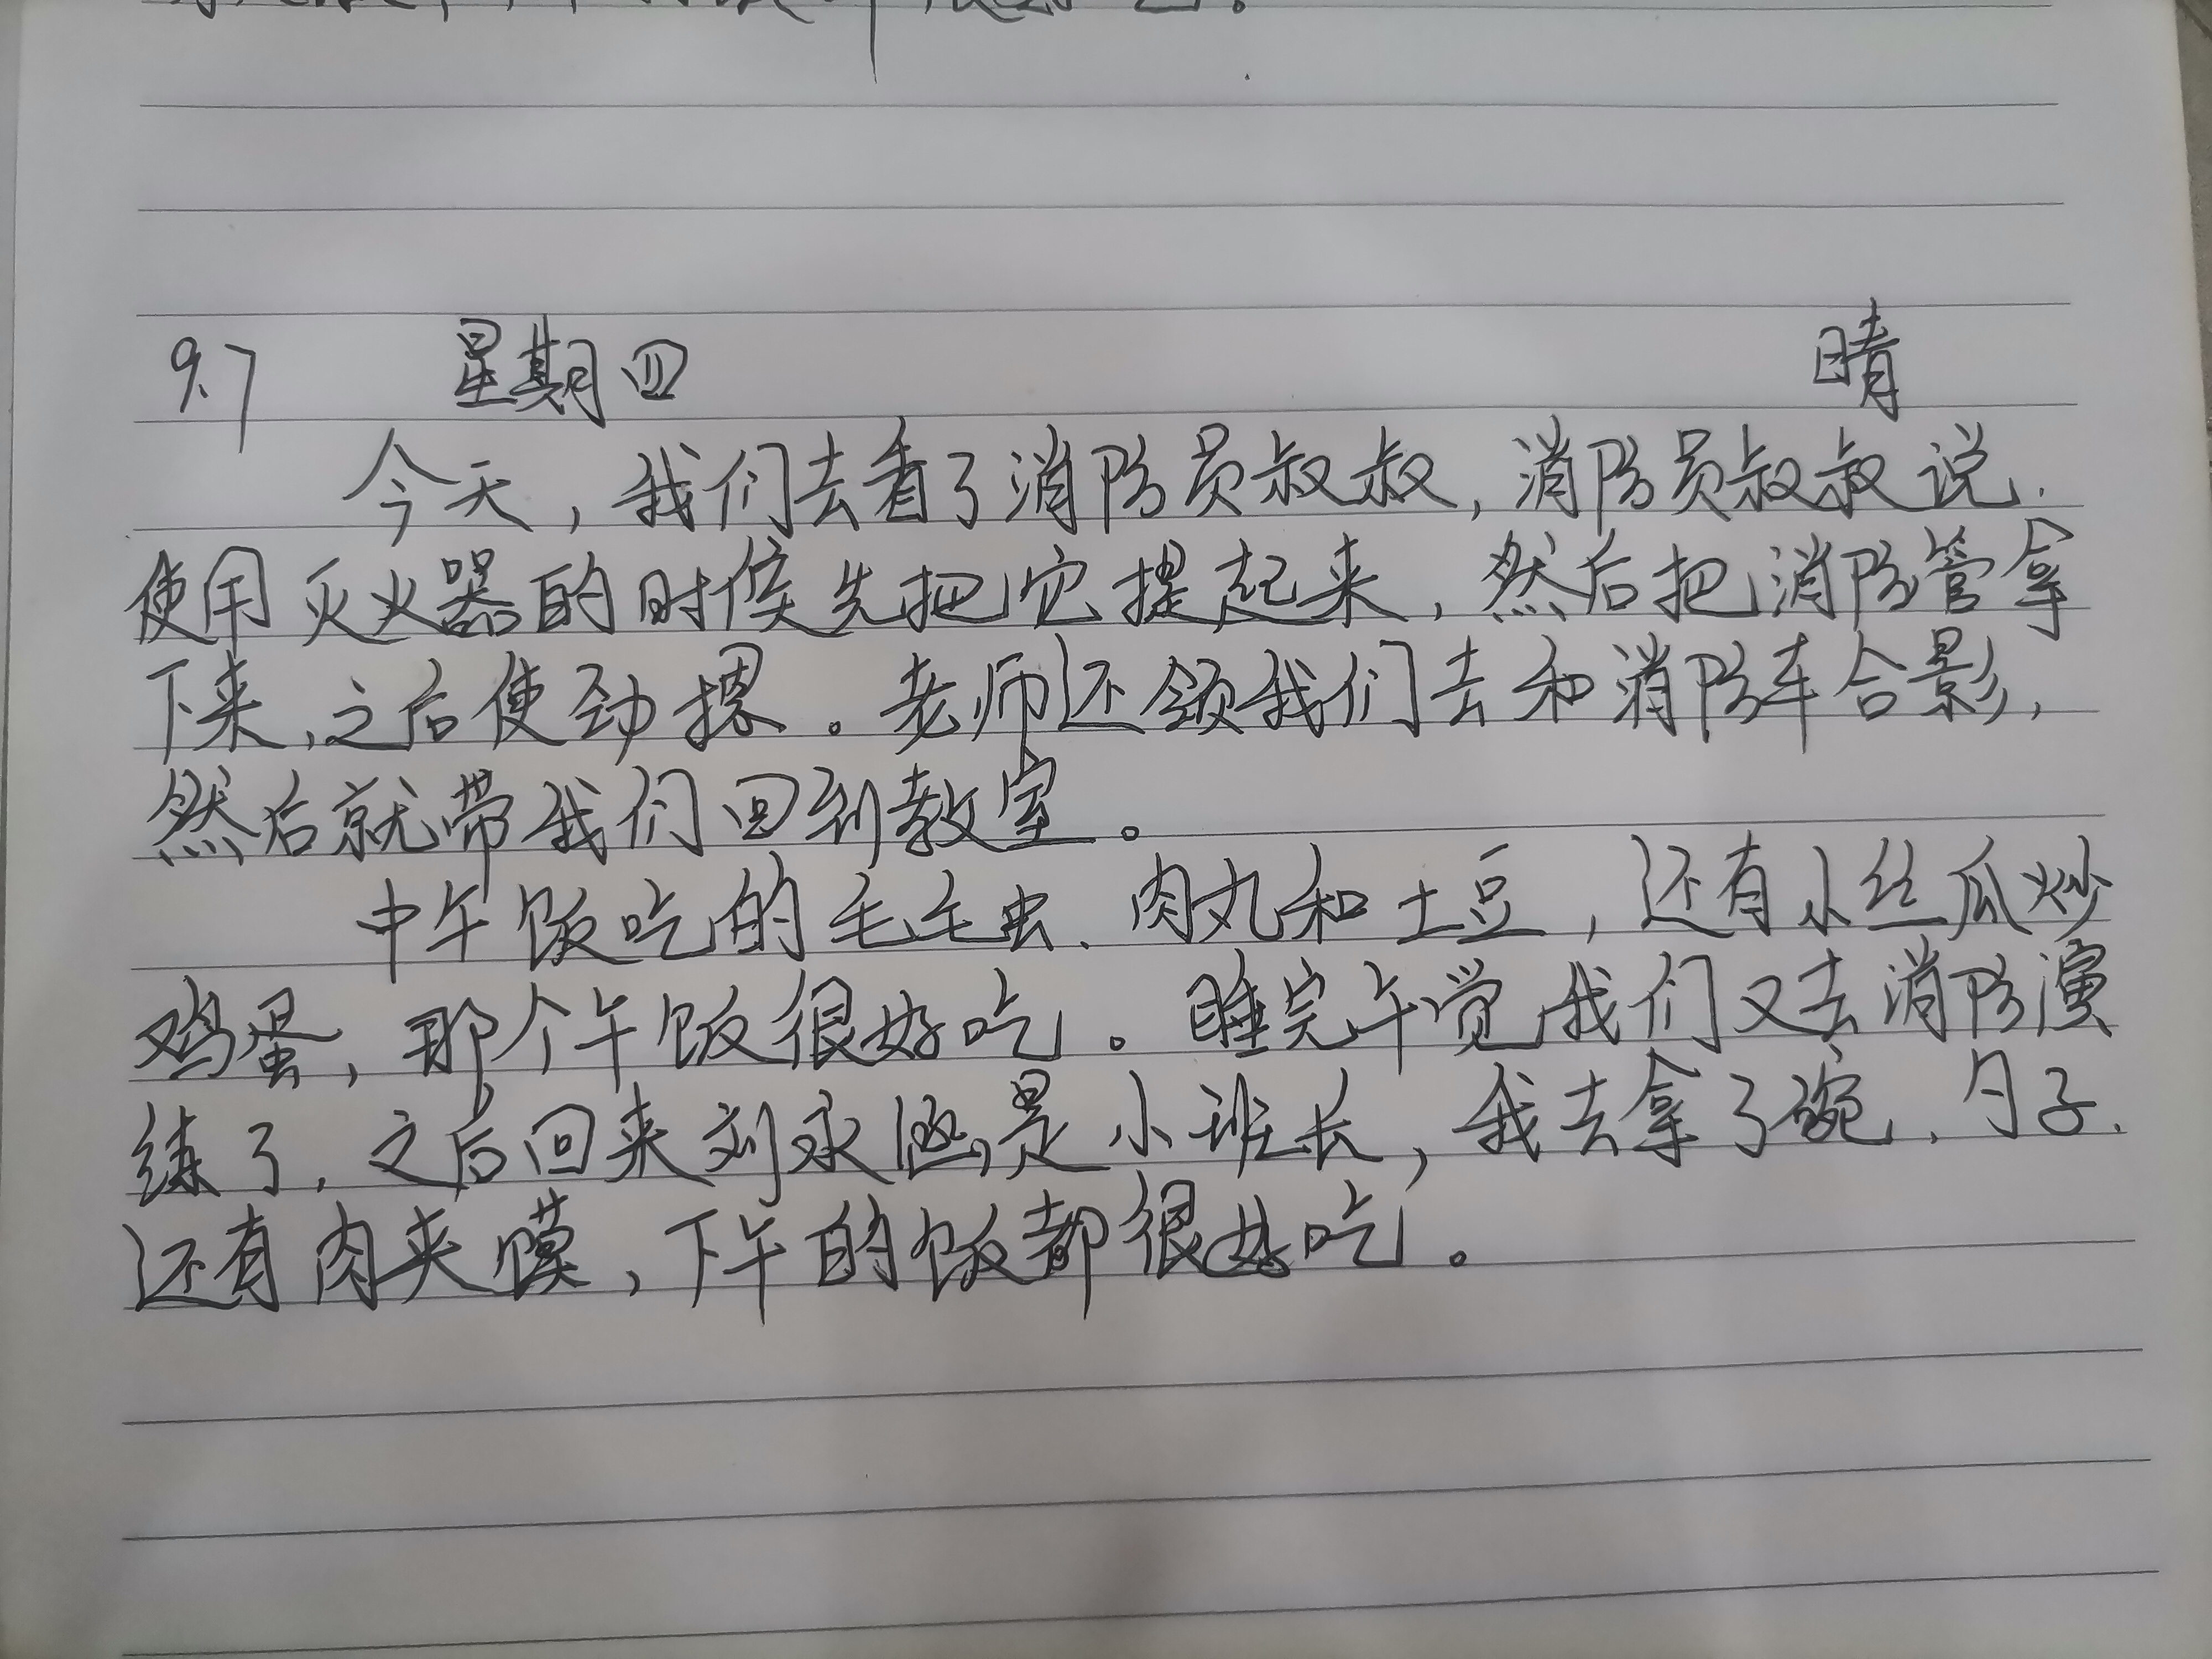 9.7 星期四 晴
今天，我们去看了消防员叔叔，消防员叔叔说.
使用灭火器的时候先把它提起来，然后把消防管拿
下来，之后使劲摁。老师还领我们去和消防车合影，
然后就带我们回到教室。
中午饭吃的毛毛虫、肉丸和土豆，还有小丝瓜炒
鸡蛋，那个午饭很好吃。睡完午觉我们又去消防演
练了，之后回来刘永涵是小班长，我去拿了碗、勺子、
还有肉夹馍，下午的饭都很好吃。